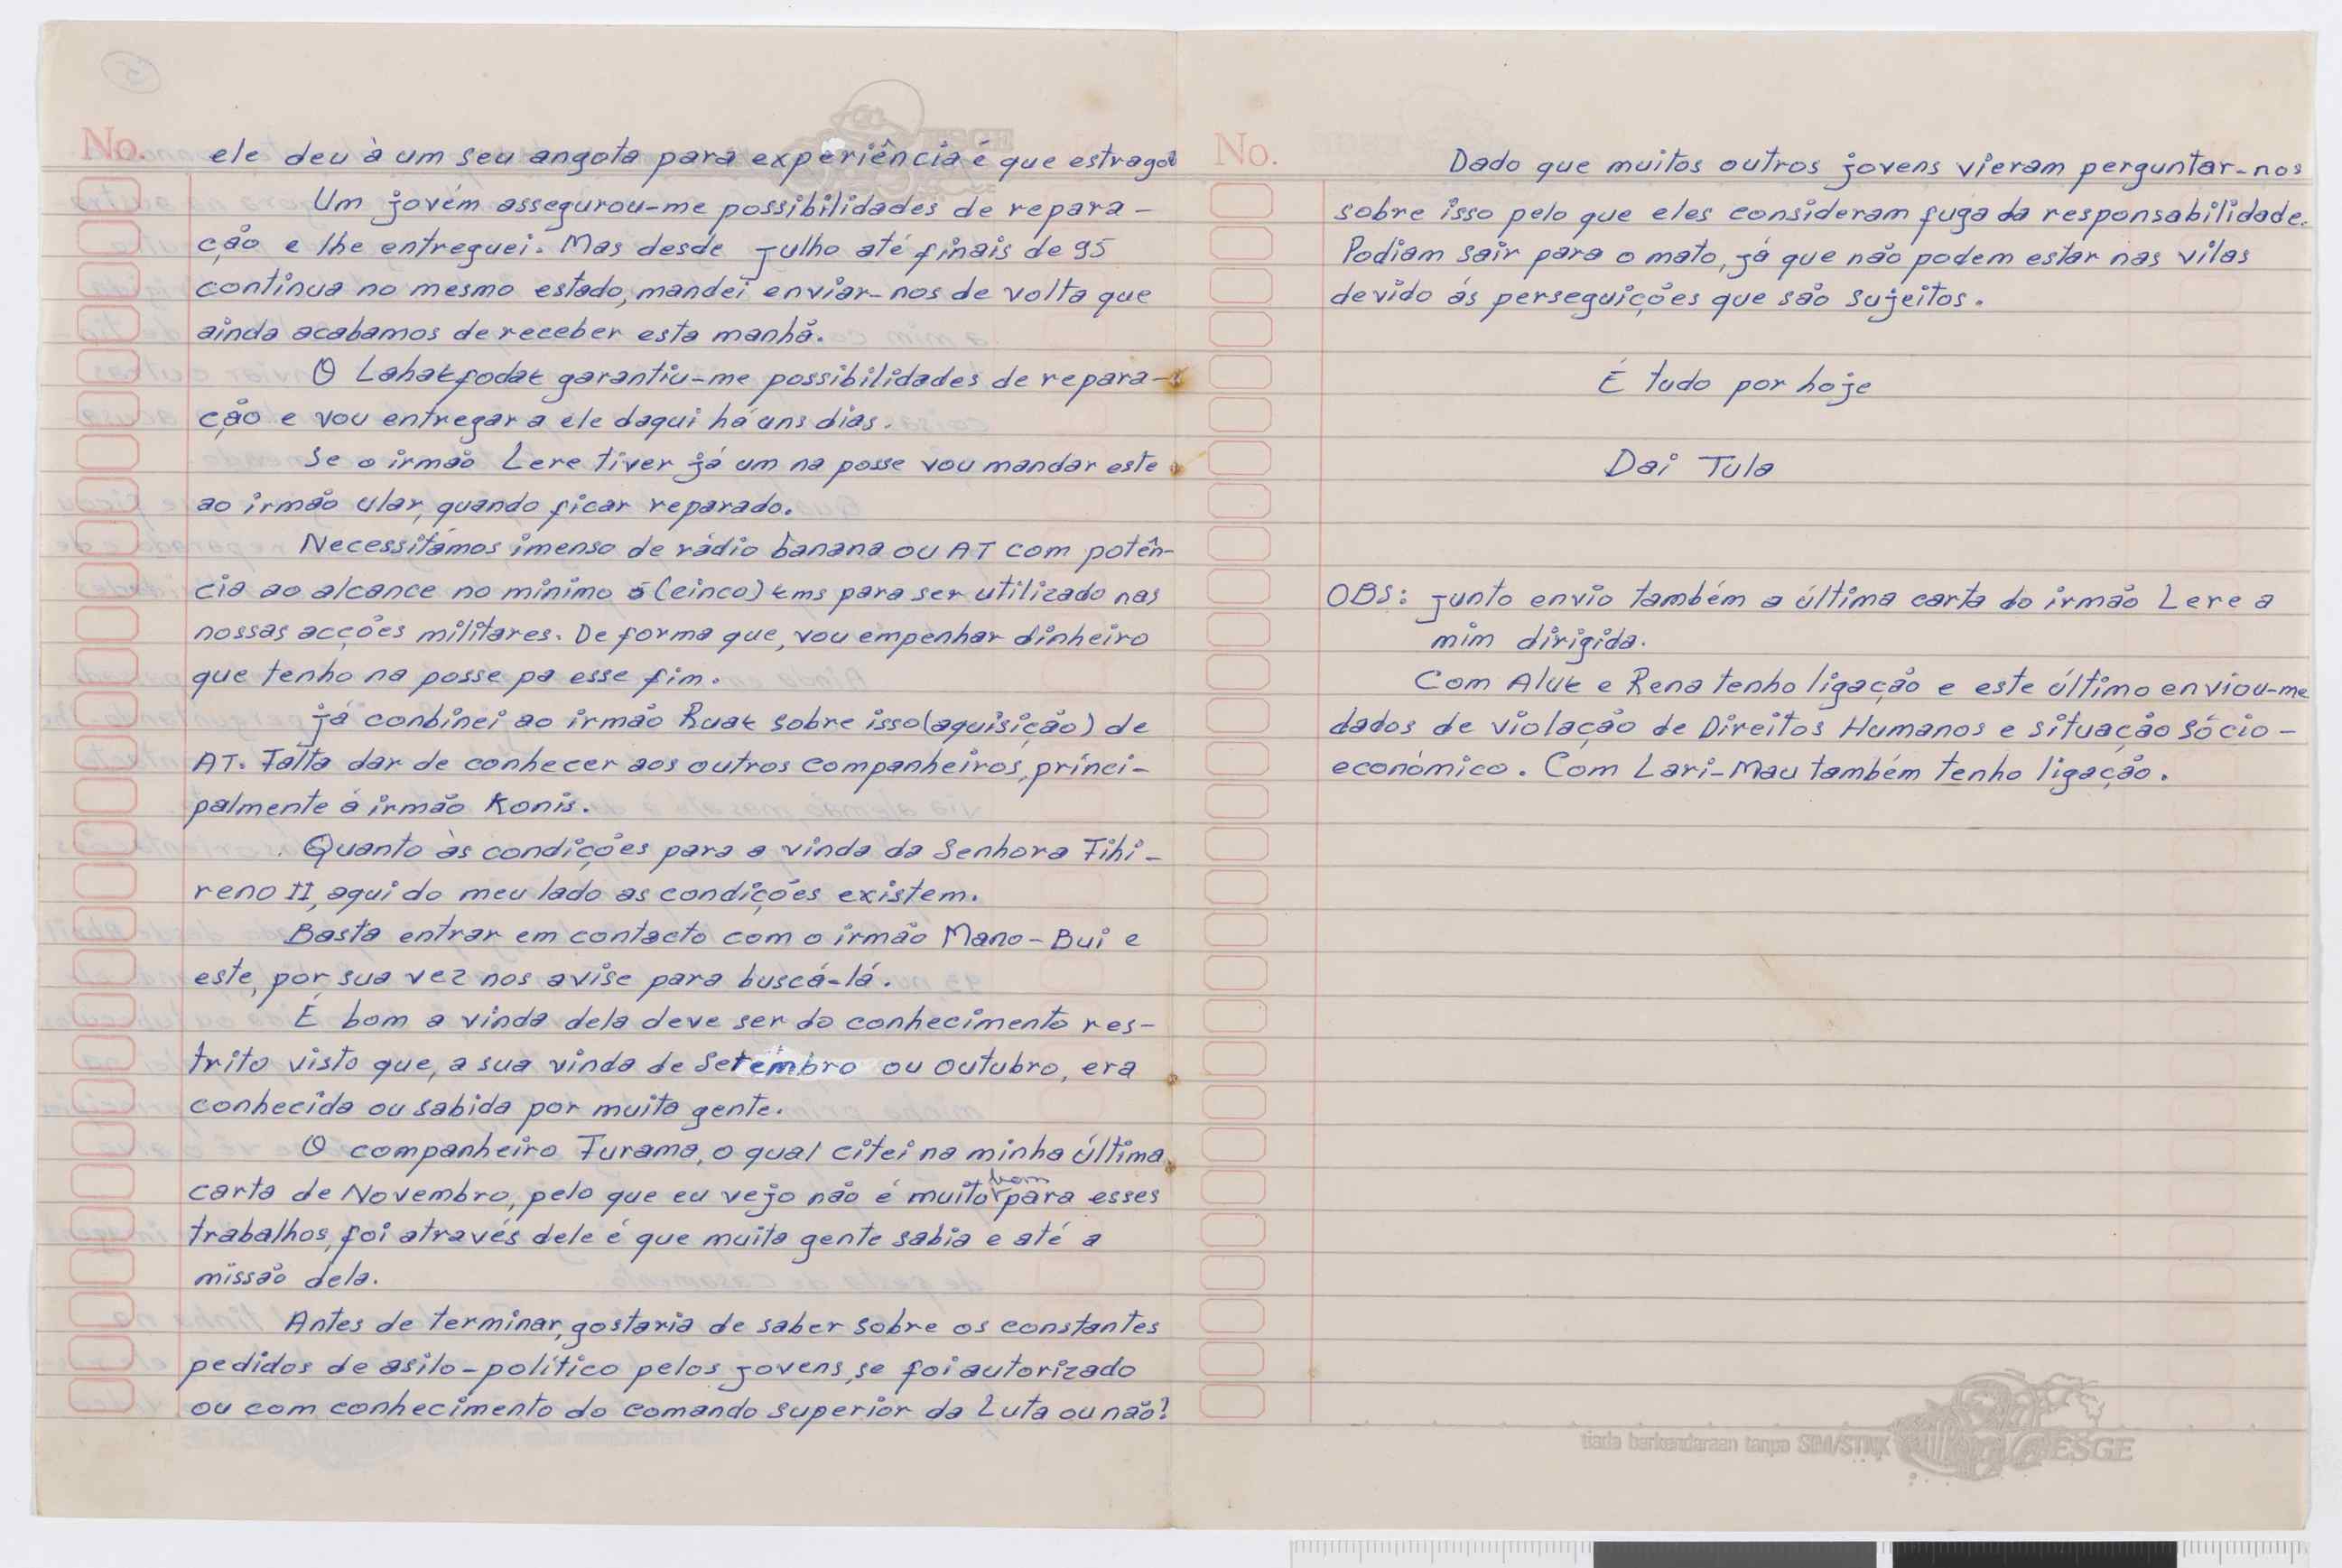 No.
ele deu à um seu angota para experiência é que estragou
Um jovém assegurou-me possibilidades de repara-
ção e lhe entreguei. Mas desde julho até finais de 95
continua no mesmo estado, mandei enviar-nos de volta que
ainda acabamos de receber esta manhã.
O Lahakfodak garantiu-me possibilidades de repara-
ção e vou entregar a ele daqui há uns dias.
Se o irmão Lere tiver já um na posse vou mandar este
ao irmão Ular, quando ficar reparado.
Necessitámos imenso de rádio banana ou AT com potên-
cia ao alcance no mínimo 5 (cinco) kms para ser utilizado nas
nossas acções militares. De forma que, vou empenhar dinheiro
que tenho na posse pa esse fim.
já conbinei ao irmão Ruak sobre isso (aquisição) de
AT. Falta dar de conhecer aos outros companheiros, princi-
palmente á irmão Konis.
Quanto às condições para a vinda da Senhora Fihi-
reno II, aqui do meu lado as condições existem.
Basta entrar em contacto com o irmão Mano-Bui e
este, por sua vez nos avise para buscá-lá.
É bom a vinda dela deve ser do conhecimento res-
trito visto que, a sua vinda de Setembro ou Outubro, era
conhecida ou sabida por muita gente.
O companheiro Turama, o qual citei na minha última
carta de Novembro, pelo que eu vejo não é muito bom para esses
trabalhos, foi através dele é que muita gente sabia e até a
missão dela.
Antes de terminar, gostaria de saber sobre os constantes
pedidos de asilo-político pelos jovens, se foi autorizado
ou com conhecimento do comando superior da Luta ou não?
No.
Dado que muitos outros jovens vieram perguntar-nos
sobre isso pelo que eles consideram fuga da responsabilidade.
Podiam sair para o mato, já que não podem estar nas vilas
devido ás perseguições que são sujeitos.
É tudo por hoje
Dai Tula
OBS: junto envio também a última carta do irmão Lere a
mim dirigida.
Com Aluk e Rena tenho ligação e este último enviou-me
dados de violação de Direitos Humanos e situação sócio-
económico. Com Lari-Mau também tenho ligação.
tiada berkendaraan tanpa SIM/STNK
GESGE